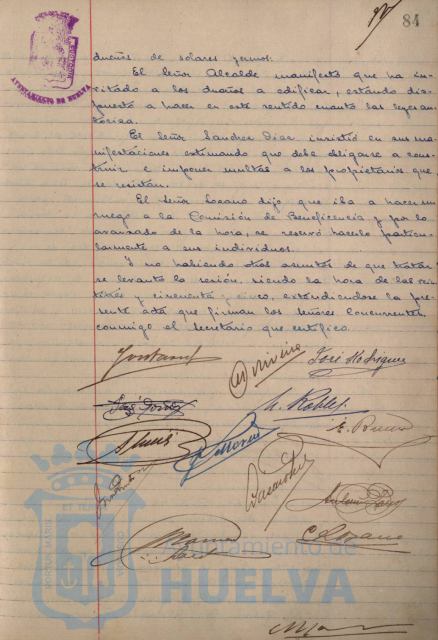 84
AYUNTAMIENTO DE HUELVA
dueños de solares yermos.
El Señor Alcalde manifestó que ha in-
vitado a los dueños a edificar, estando dis-
puesto a hacer en este sentido cuanto las leyes au-
torizan.
El Señor Sanchez Diaz insistió en sus ma-
nifestaciones estimando que debe obligarse a cons-
truir e imponer multas a los propietarios que
se resistan.
El Señor Lozano dijo que iba a hacer un
ruego a la Comisión de Beneficencia y por lo
avanzado de la hora, se reservó hacerlo particu-
larmente a sus individuos.
Y no habiendo otros asuntos de que tratar
se levantó la sesión, siendo la hora de las vein-
titrés y cincuenta y cinco, extendiendose la pre-
sente acta que firman los señores concurrentes,
conmigo el Secretario que certifico.
José Rodriguez
C. Lozano
Ayuntamiento de
HUELVA